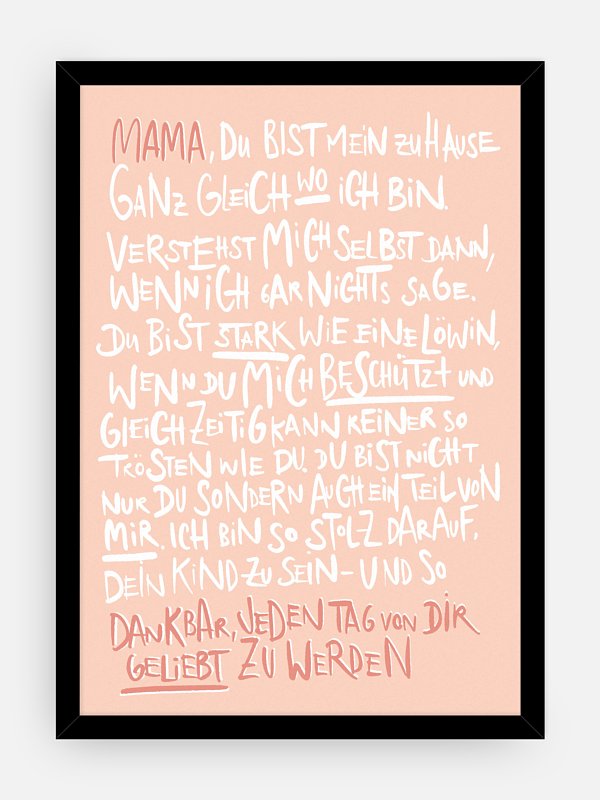 MAMA, DU BIST MEIN ZUHAUSE
GANZ GLEICH WO ICH BIN.
VERSTEHST MICH SELBST DANN,
WENN ICH GAR NICHTS SAGE.
DU BIST STARK WIE EINE LÖWIN,
WENN DU MICH BESCHÜTZT UND
GLEICHZEITIG KANN KEINER SO
TRÖSTEN WIE DU. DU BIST NICHT
NUR DU SONDERN AUCH EIN TEIL VON
MIR. ICH BIN SO STOLZ DARAUF,
DEIN KIND ZU SEIN - UND SO
DANKBAR, JEDEN TAG VON DIR
GELIEBT ZU WERDEN